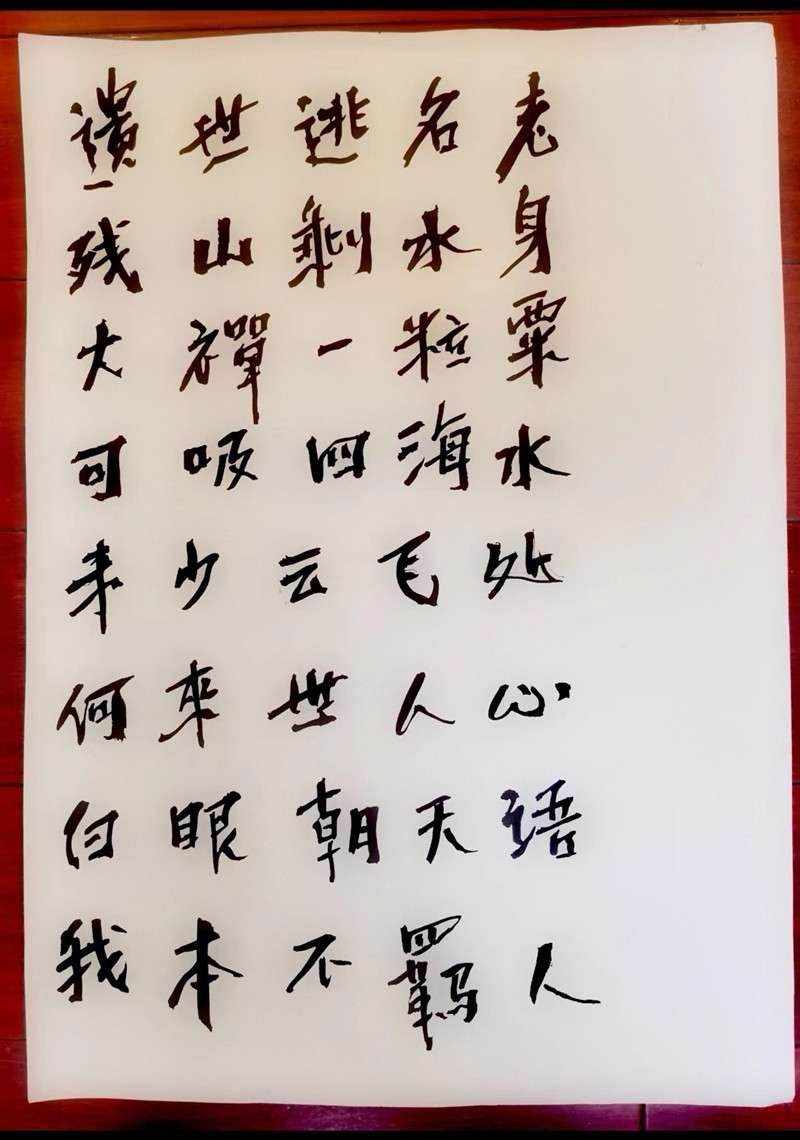 遺世逃名老
残山剩水身
大禪一粒粟
可吸四海水
少云飞处
何來世人心
白眼朝天语
我本不羁人